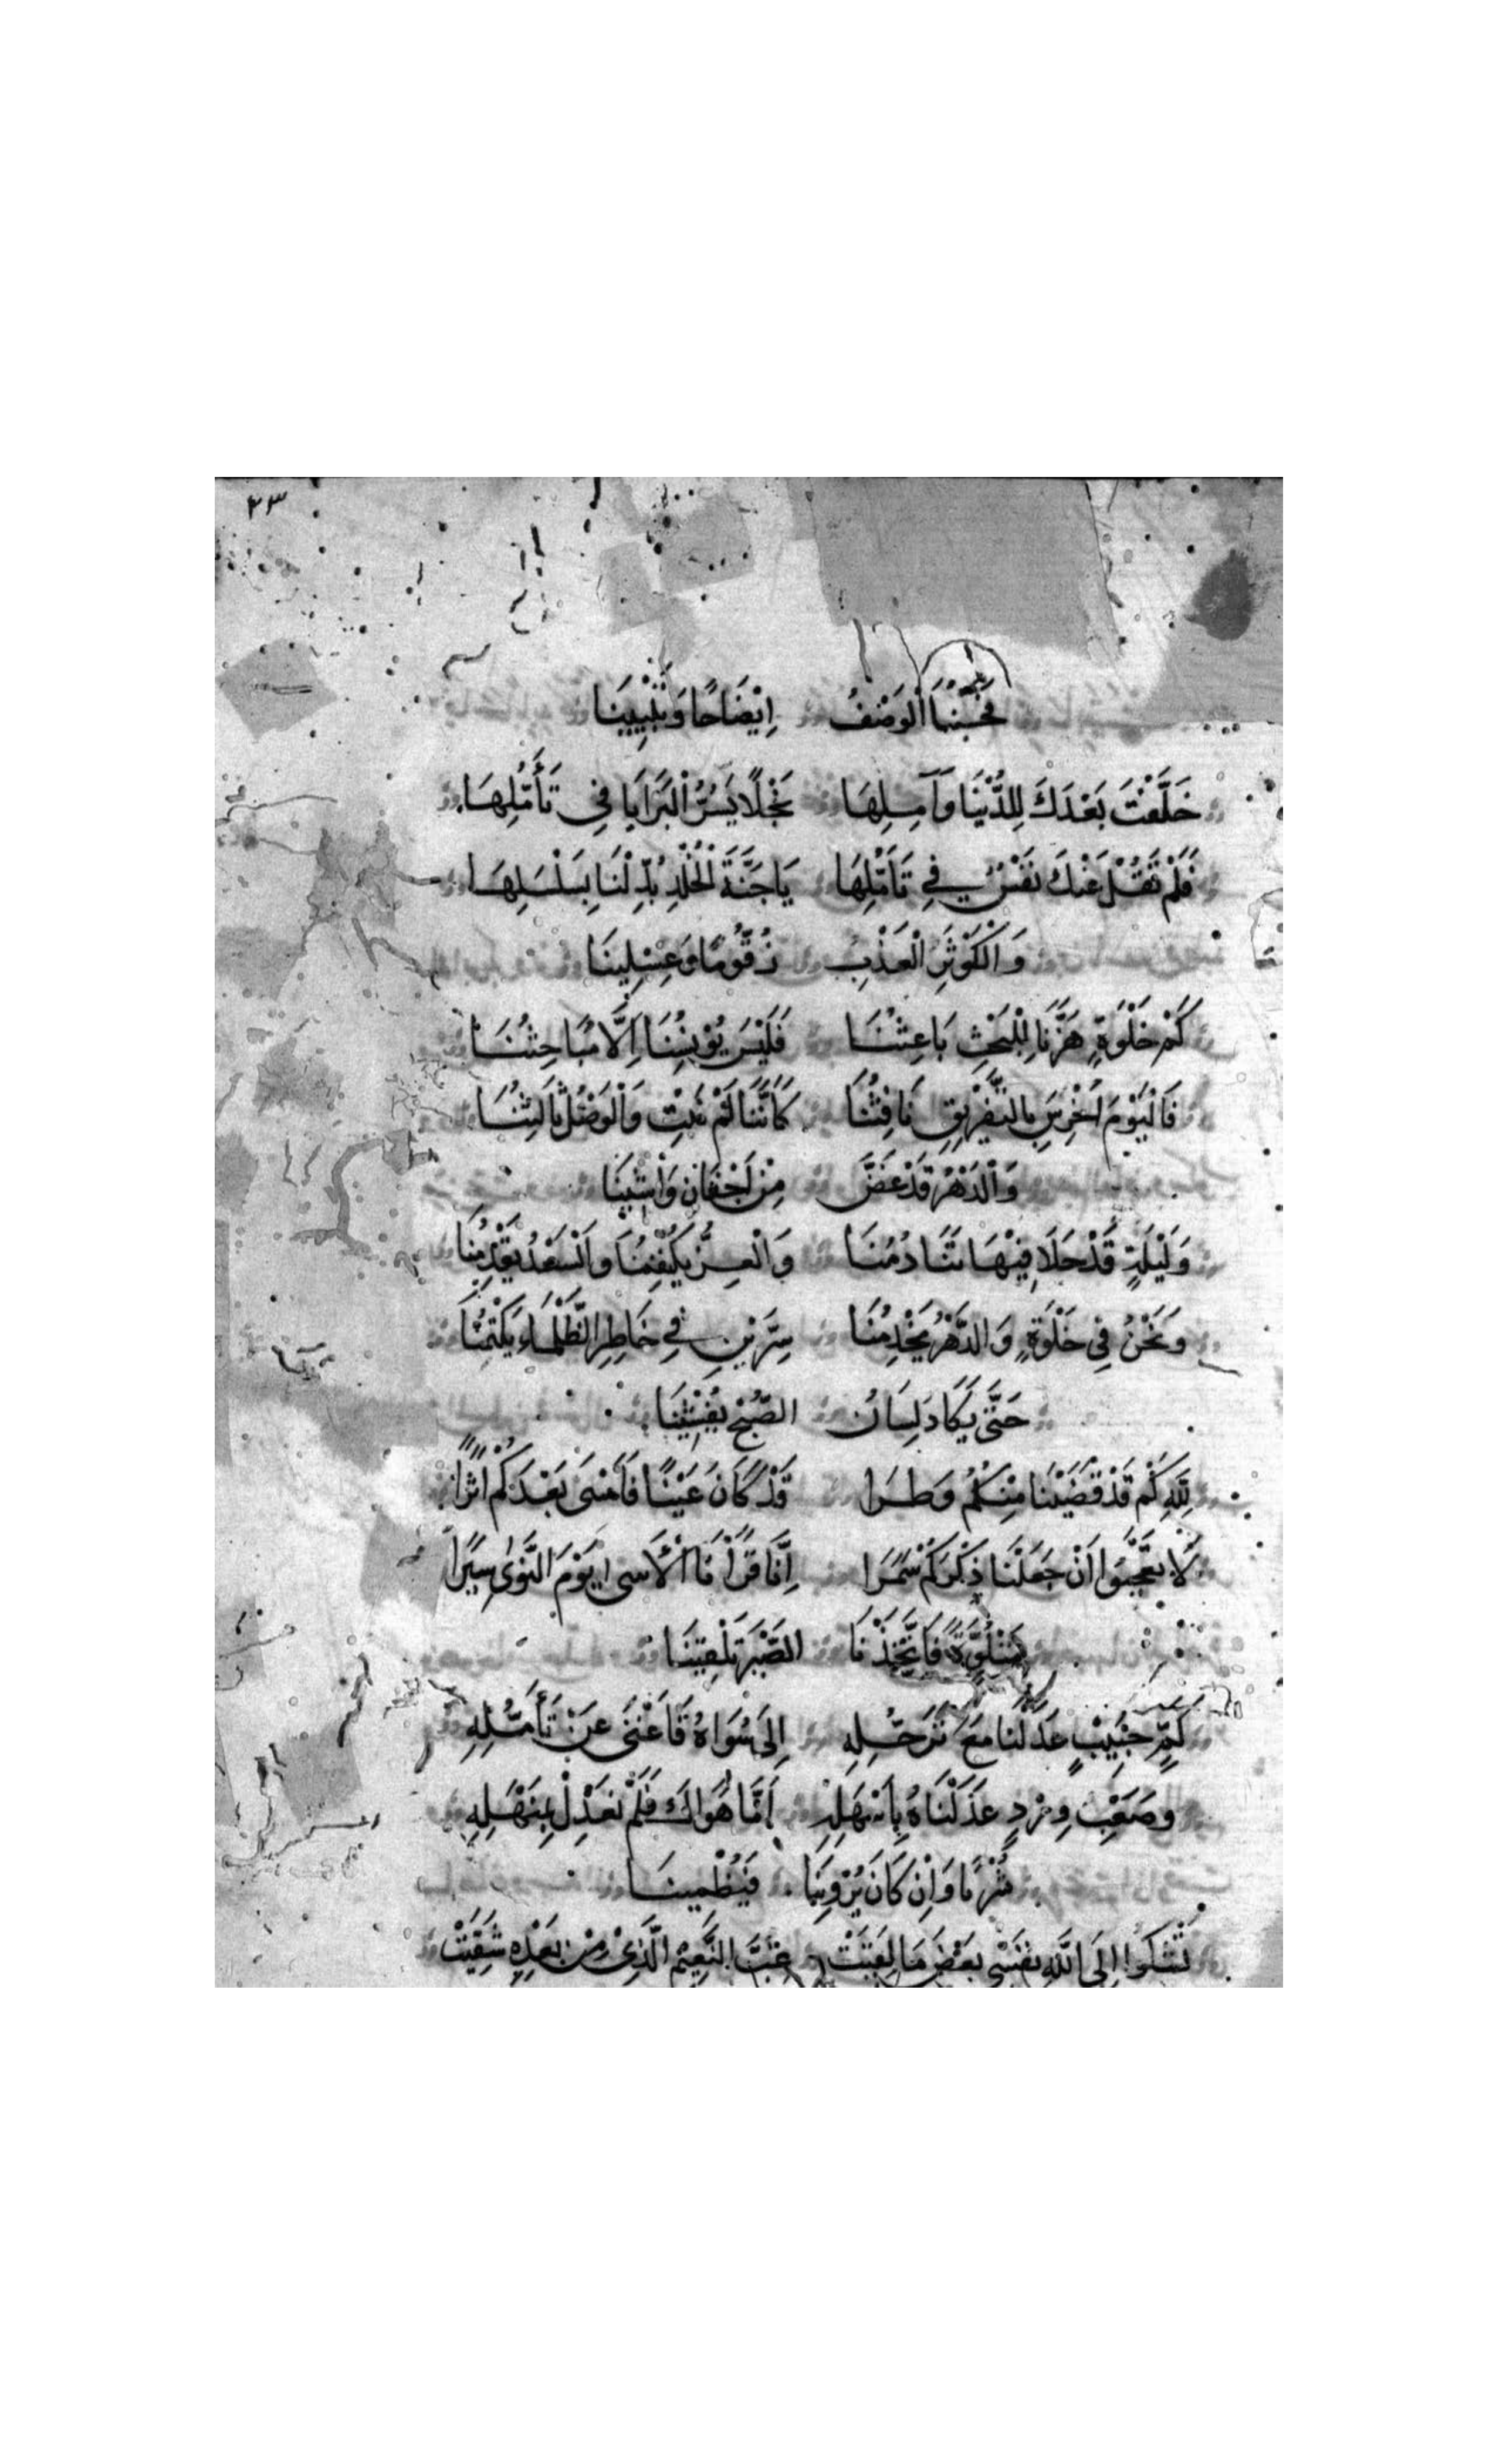 ٣٣
فحسبنا الوصف إِيْضَاحًا وَتَبْيِينَا
خَلَّفْتَ بَعْدَكَ لِلدُّنْيَا وَآمِلِهَا نَجْلًا يَسُرُّ الْبَرَايَا فِي تَأَمُّلِهَا
فَلَمْ تَقُلْ عَنْكَ نَفْسٌ فِي تَأَمُّلِهَا يَا جَنَّةَ الْخُلْدِ بُدِّلْنَا بِسَلْسَلِهَا
وَالْكَوْثَرِ الْعَذْبِ زَقُّومًا وَغِسْلِينَا
كَمْ خَلْوَةٍ هَزَّنَا لِلْبَحْثِ بَاعِثُنَا فَلَيْسَ يُوْنِسُنَا إِلَّا مَبَاحِثُنَا
فَالْيَوْمَ أُخْرِسَ بِالتَّفْرِيقِ نَافِثُنَا كَأَنَّنَا لَمْ نَبِتْ وَالْوَصْلُ ثَالِثُنَا
وَالدَّهْرُ قَدْ غَضَّ مِنْ أَجْفَانِ وَاشِينَا
وَلَيْلَةٍ قَدْ حَلَا فِيْهَا تَنَادُمُنَا وَالْعِزُّ يَكْنُفُنَا وَالسَّعْدُ يَقْدُمُنَا
وَنَحْنُ فِي خَلْوَةٍ وَالدَّهْرُ يَخْدِمُنَا سِرَّيْنِ فِي خَاطِرِ الظَّلْمَاءِ يَكْتُمُنَا
حَتَّى يَكَادَ لِسَانُ الصُّبْحِ يُفْشِيْنَا
لِلّٰهِ كَمْ قَدْ قَضَيْنَا مِنْكُمُ وَطَرَا قَدْ كَانَ عَيْنًا فَأَمْسَى بَعْدَكُمْ أَثَرًا
لَا تَعْجَبُوا أَنْ جَعَلْنَا ذِكْرَكُمْ سَمَرَا إِنَّا قَرَأْنَا الْأَسَى يَوْمَ النَّوَى سُوَرًا
مَتْلُوَّةً فَاتَّخَذْنَا الصَّبْرَ تَلْقِينَا
كَمْ حَبِيْبٍ عَدَلْنَا مَعَ تَرَحُّلِهِ إِلَى سُوَاهُ فَأَغْنَى عَنْ تَأَمُّلِهِ
وَصَعْبِ وِرْدٍ عَدَلْنَاهُ بِأَسْهَلِهِ أَمَّا هَوَاكَ فَلَمْ نَعْدِلْ بِمَنْهَلِهِ
شُرْبًا وَإِنْ كَانَ يُرْوِينَا فَيُظْمِينَا
تَشْكُوا إِلَى اللّٰهِ نَفْسِي بَعْضَ مَا لَقِيَتْ غِبَّ النَّعِيْمِ الَّذِيْ مِنْ بَعْدِهِ شَقِيَتْ